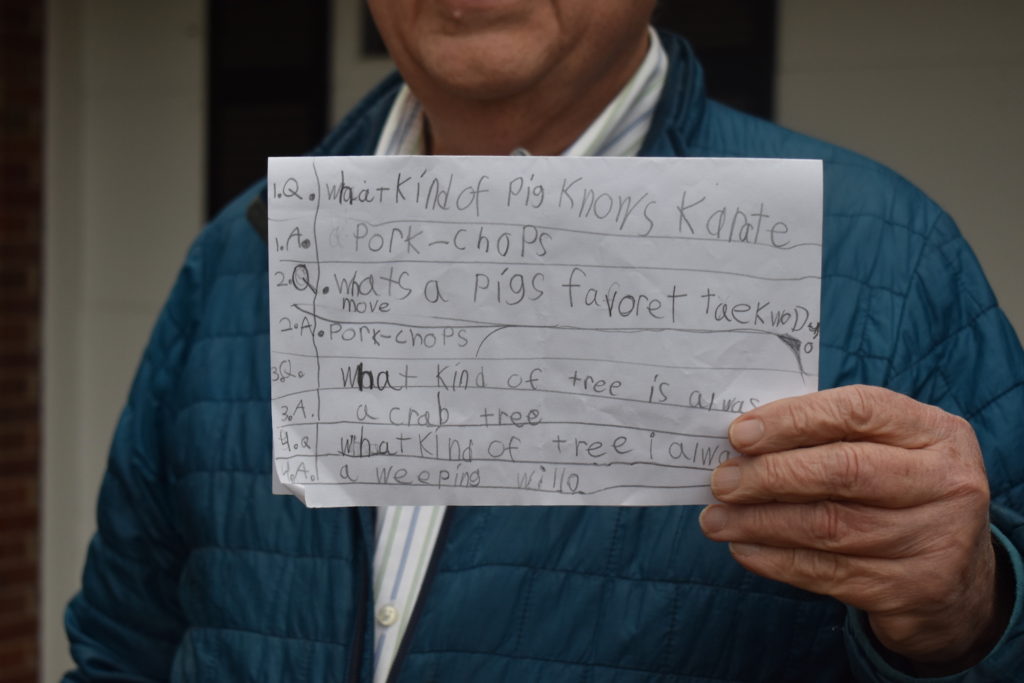 1.Q. what kind of pig knows karate
1.A. a Pork-chops
2.Q. whats a pigs favoret taekwoD
move o
2.A. Pork-chops
3.Q. what kind of tree is alwas
3.A. a crab tree
4.Q what kind of tree i alwa
4.A. a weeping willo